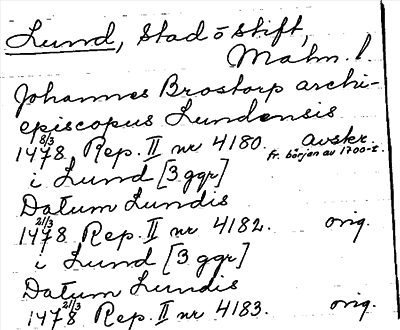 Lund, stad o stift,
Malm. l.
Johannes Brostorp archi-
episcopus Lundensis
8/3
1478 Rep. II nr 4180. avskr.
fr. början av 1700-t.
i Lund [3 ggr]
Datum Lundis
21/3
1478 Rep. II nr 4182. orig.
i Lund [3 ggr]
Datum Lundis
21/3
1478 Rep. II nr 4183. orig.